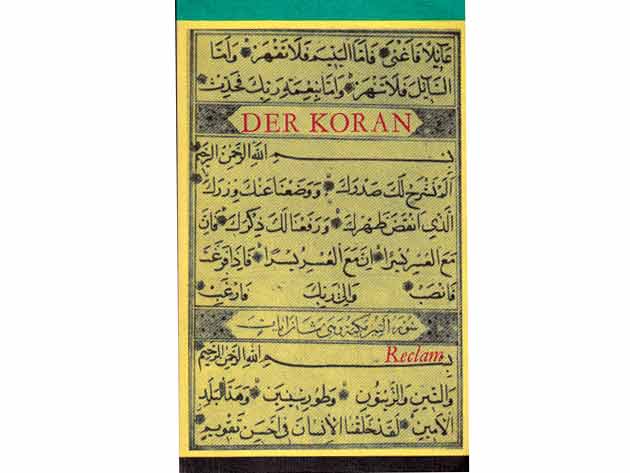 عَائِلًا فَأَغْنَىٰ فَأَمَّا الْيَتِيمَ فَلَا تَقْهَرْ وَأَمَّا
السَّائِلَ فَلَا تَنْهَرْ وَأَمَّا بِنِعْمَةِ رَبِّكَ فَحَدِّثْ
DER KORAN
بِسْمِ اللَّهِ الرَّحْمَنِ الرَّحِيمِ
أَلَمْ نَشْرَحْ لَكَ صَدْرَكَ وَوَضَعْنَا عَنْكَ وِزْرَكَ
الَّذِي أَنْقَضَ ظَهْرَكَ وَرَفَعْنَا لَكَ ذِكْرَكَ فَإِنَّ
مَعَ الْعُسْرِ يُسْرًا إِنَّ مَعَ الْعُسْرِ يُسْرًا فَإِذَا فَرَغْتَ
فَانْصَبْ وَإِلَىٰ رَبِّكَ فَارْغَبْ
سورة التين مكية وهي ثمان آيات
Reclam
بِسْمِ اللَّهِ الرَّحْمَنِ الرَّحِيمِ
وَالتِّينِ وَالزَّيْتُونِ وَطُورِ سِينِينَ وَهَذَا الْبَلَدِ
الْأَمِينِ لَقَدْ خَلَقْنَا الْإِنْسَانَ فِي أَحْسَنِ تَقْوِيمٍ